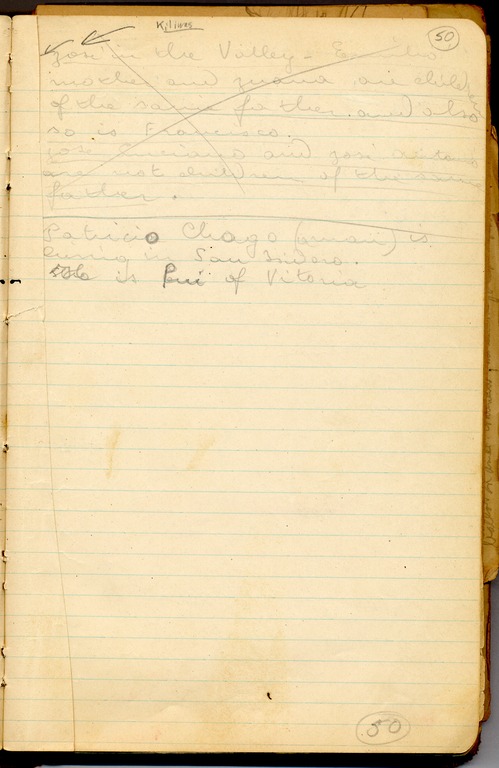 Kiliwas
50
José in the Valley - Emilio's
mother and Juana, are child
of the same father and also
so is Francisco.
José and José
are not children of the same
father.
Patricio Chago (         ) is
living in San Isidero.
is of Vitoria
50